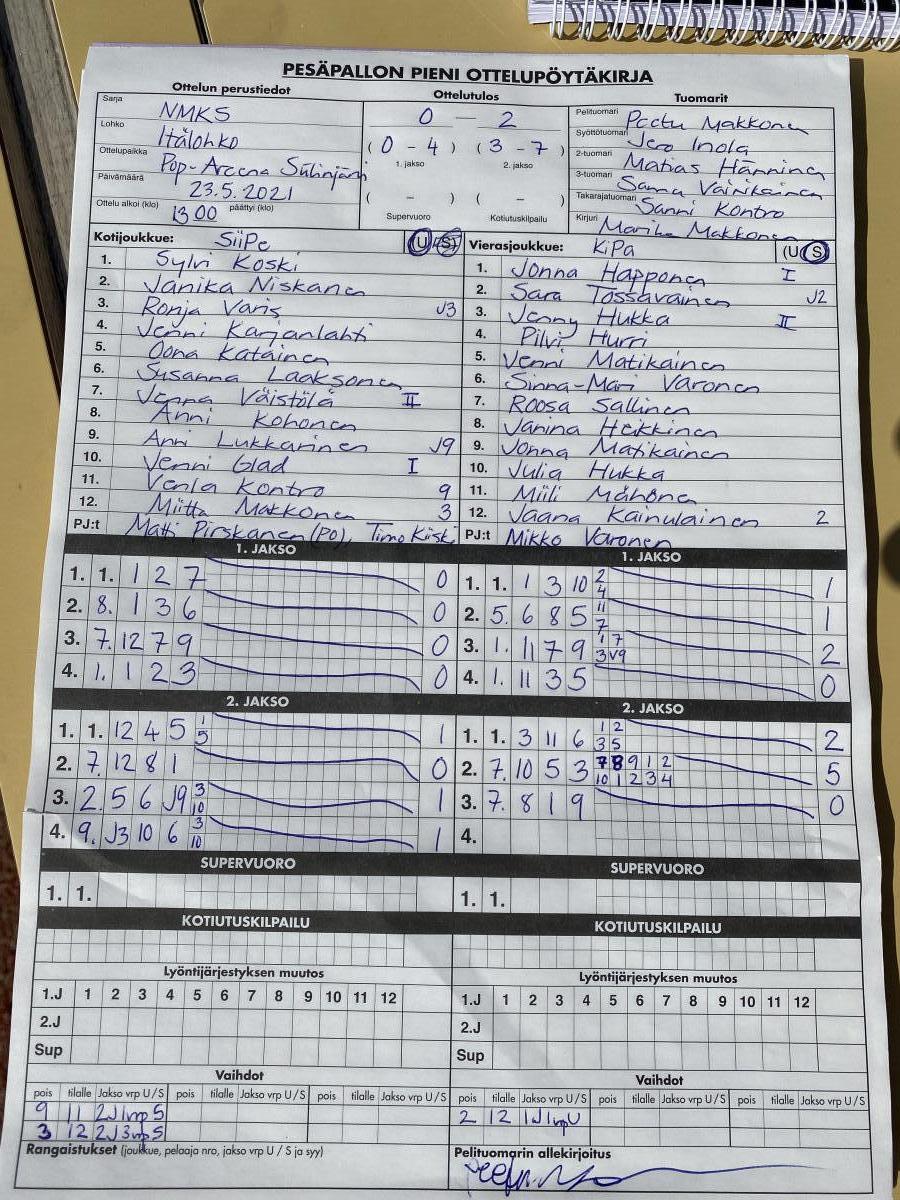 PESÄPALLON PIENI OTTELUPÖYTÄKIRJA
Ottelun perustiedot
Sarja NMKS
Lohko Itälohko
Ottelupaikka Pop-Areena Siilinjärvi
Päivämäärä 23.5.2021
Ottelu alkoi (klo) 13 00 päättyi (klo)
Ottelutulos
0 — 2
( 0 - 4 ) ( 3 - 7 )
1. jakso 2. jakso
( - ) ( - )
Supervuoro Kotiutuskilpailu
Tuomarit
Pelituomari Makkonen
Syöttötuomari Jero Inola
2-tuomari Matias Hänninen
3-tuomari Sanna Vainikainen
Takarajatuomari Sanni Kontro
Kirjuri Marika Makkonen
Kotijoukkue: SiiPe (U/S)
1. Sylvi Koski
2. Janika Niskanen
3. Ronja Varis J3
4. Jenni Karjanlahti
5. Oona Katainen
6. Susanna Laaksonen
7. Jenna Väistölä II
8. Anni Kohonen
9. Anni Lukkarinen J9
10. Jenni Glad I
11. Venla Kontro 9
12. Miitta Makkonen 3
PJ:t Matti Pirskanen (PO), Timo Kiiski
Vierasjoukkue: KiPa (U/S)
1. Jonna Happonen I
2. Sara Tossavainen J2
3. Jenny Hukka II
4. Pilvi Hurri
5. Venni Matikainen
6. Sinna-Mari Varonen
7. Roosa Sallinen
8. Janina Heikkinen
9. Jonna Matikainen
10. Julia Hukka
11. Miili Mähönen
12. Jaana Kainulainen 2
PJ:t Mikko Varonen
1. JAKSO
1. 1. 1 2 7 0
2. 8. 1 3 6 0
3. 7. 12 7 9 0
4. 1. 1 2 3 0
1. JAKSO
1. 1. 1 3 10 2 4 1
2. 5. 6 8 5 11 7 1
3. 1. 11 7 9 1 7 3 v9 2
4. 1. 11 3 5 0
2. JAKSO
1. 1. 12 4 5 1 5 1
2. 7. 12 8 1 0
3. 2. 5 6 J9 3 10 1
4. 9. J3 10 6 3 10 1
2. JAKSO
1. 1. 3 11 6 1 2 3 5 2
2. 7. 10 5 3 7 8 9 1 2 10 1 2 3 4 5
3. 7. 8 1 9 0
4.
SUPERVUORO
1. 1.
SUPERVUORO
1. 1.
KOTIUTUSKILPAILU
KOTIUTUSKILPAILU
Lyöntijärjestyksen muutos
1.J 1 2 3 4 5 6 7 8 9 10 11 12
2.J
Sup
Lyöntijärjestyksen muutos
1.J 1 2 3 4 5 6 7 8 9 10 11 12
2.J
Sup
Vaihdot
pois tilalle Jakso vrp U/S pois tilalle Jakso vrp U/S pois tilalle Jakso vrp U/S
9 11 2J1vrp S
3 12 2J3vrp S
Vaihdot
pois tilalle Jakso vrp U/S pois tilalle Jakso vrp U/S pois tilalle Jakso vrp U/S
2 12 1J1vrpU
Rangaistukset (joukkue, pelaaja nro, jakso vrp U / S ja syy)
Pelituomarin allekirjoitus